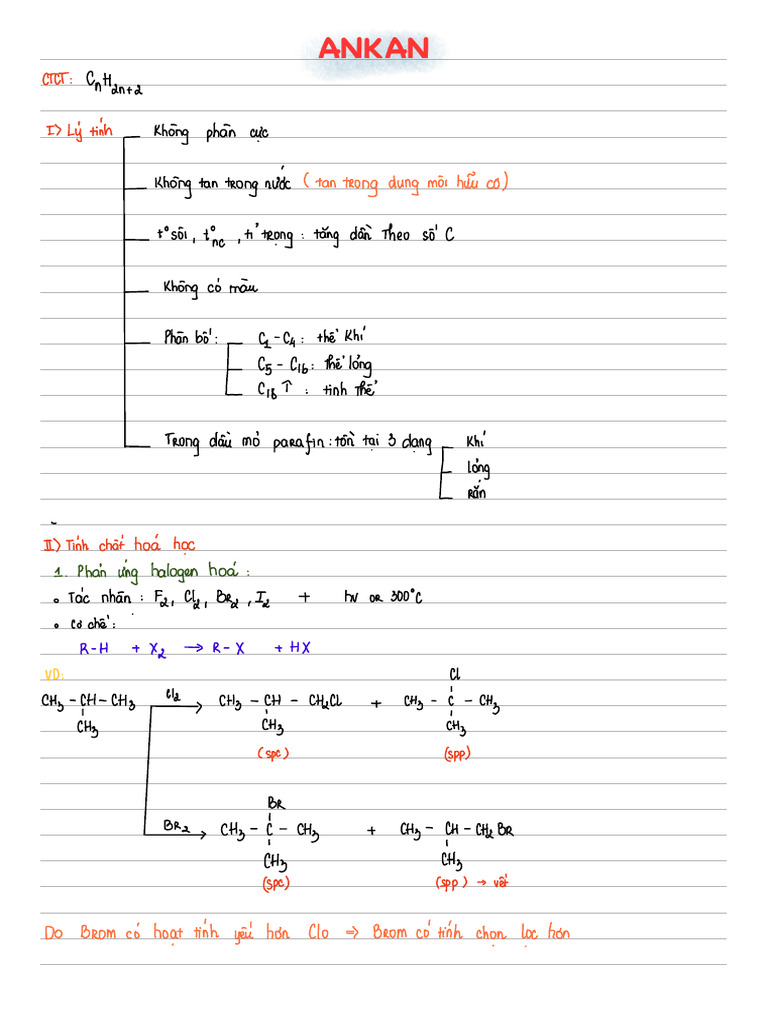 ANKAN
CTCT: CnH2n+2
I> Lý tính
Không phân cực
Không tan trong nước (tan trong dung môi hữu cơ)
t°sôi, t°nc, tỉ trọng: tăng dần theo số C
Không có màu
Phân bố:
C1-C4: thể khí
C5-C16: thể lỏng
C18 ↑ : tinh thể
Trong dầu mỏ parafin: tồn tại 3 dạng
khí
lỏng
rắn
II> Tính chất hoá học
1. Phản ứng halogen hoá:
• Tác nhân: F2, Cl2, Br2, I2 + hν or 300°C
• Cơ chế:
R-H + X2 → R-X + HX
VD:
Cl
CH3 - CH - CH3 Cl2 CH3 - CH - CH2Cl + CH3 - C - CH3
CH3 CH3 CH3
(spc) (spp)
Br
Br2 CH3 - C - CH3 + CH3 - CH - CH2Br
CH3 CH3
(spc) (spp) → vết
Do Brom có hoạt tính yếu hơn Clo ⇒ Brom có tính chọn lọc hơn